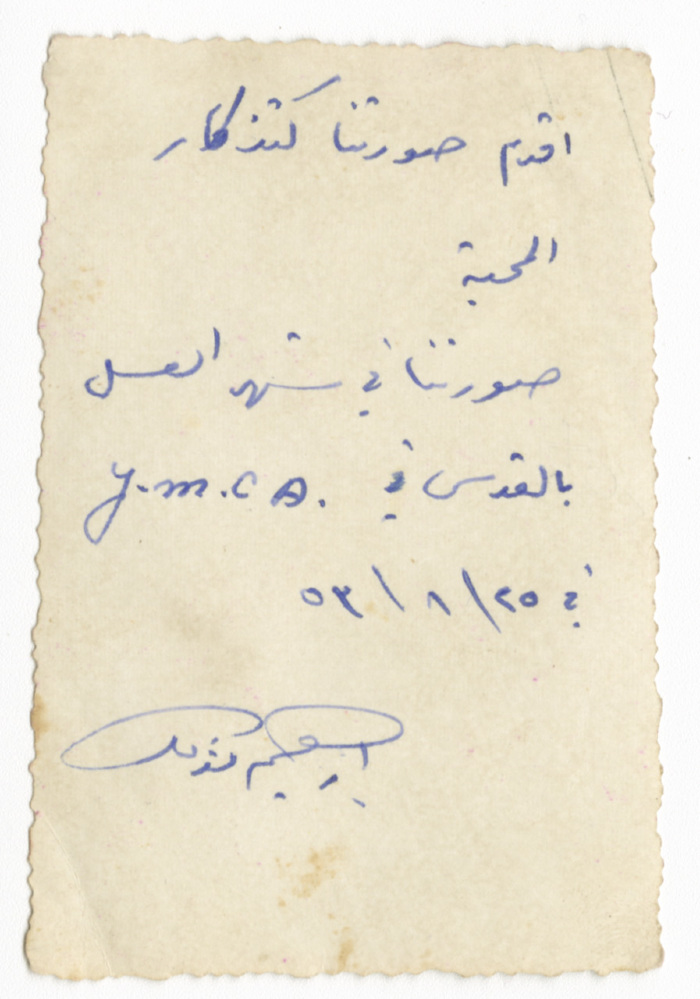 اقدم صورتنا كتذكار
المحبة
صورتنا في شهر العسل
بالقدس في Y.M.C A.
في ٢٥ / ٨ / ٥٣
ابراهيم